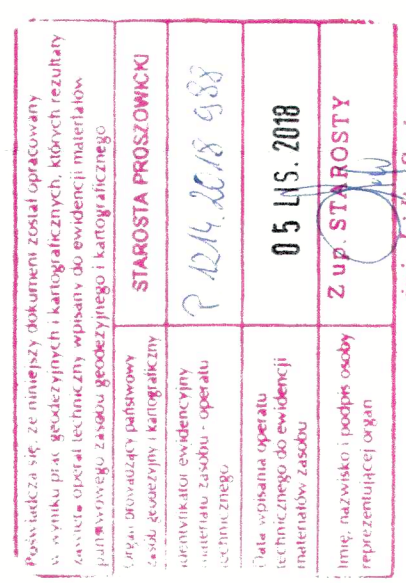 Poświadcza się, że niniejszy dokument został opracowany
w wyniku prac geodezyjnych i kartograficznych, których rezultaty
zawiera operat techniczny wpisany do ewidencji materiałów
państwowego zasobu geodezyjnego i kartograficznego
Organ prowadzący państwowy
zasób geodezyjny i kartograficzny
STAROSTA PROSZOWICKI
Identyfikator ewidencyjny
materiału zasobu - operatu
technicznego
P 1214.2018 988
Data wpisania operatu
technicznego do ewidencji
materiałów zasobu
05 LIS. 2018
Imię, nazwisko i podpis osoby
reprezentującej organ
Z up. STAROSTY